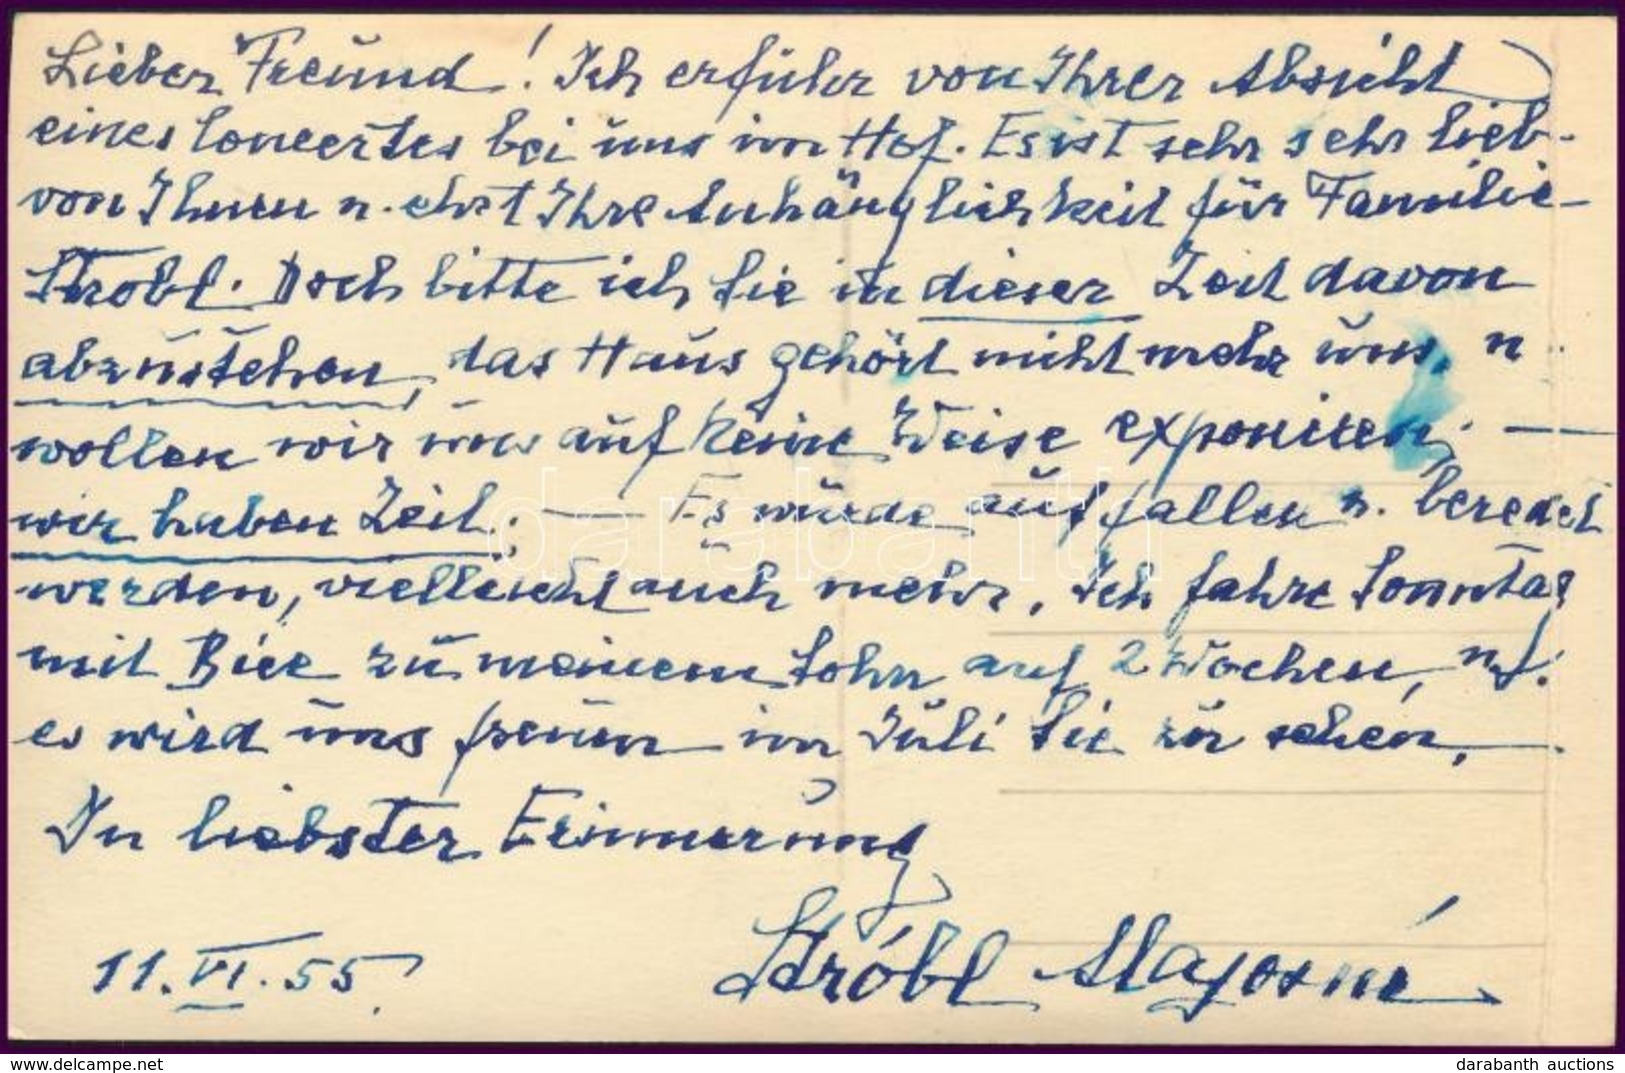 Lieber Freund! Ich erfuhr von Ihrer Absicht
eines Concertes bei uns im Hof. Es ist sehr sehr lieb-
von Ihnen u. ehrt Ihre Anhänglichkeit für Familie-
Strobl. Doch bitte ich Sie in dieser Zeit davon
abzustehen, das Haus gehört nicht mehr uns, u.
wollen wir uns auf keine Weise exponiren. —
wir haben Zeit. — Es würde auffallen u. beredet
werden, vielleicht auch mehr. Ich fahre Sonntag
mit Bice zu meinem Sohn auf 2 Wochen,
es wird uns freuen im Juli Sie zu sehen,
In liebster Erinnerung
Stróbl Alajosné
11. VI. 55.
darabanth
hu.delcampe.net
darabanth auctions